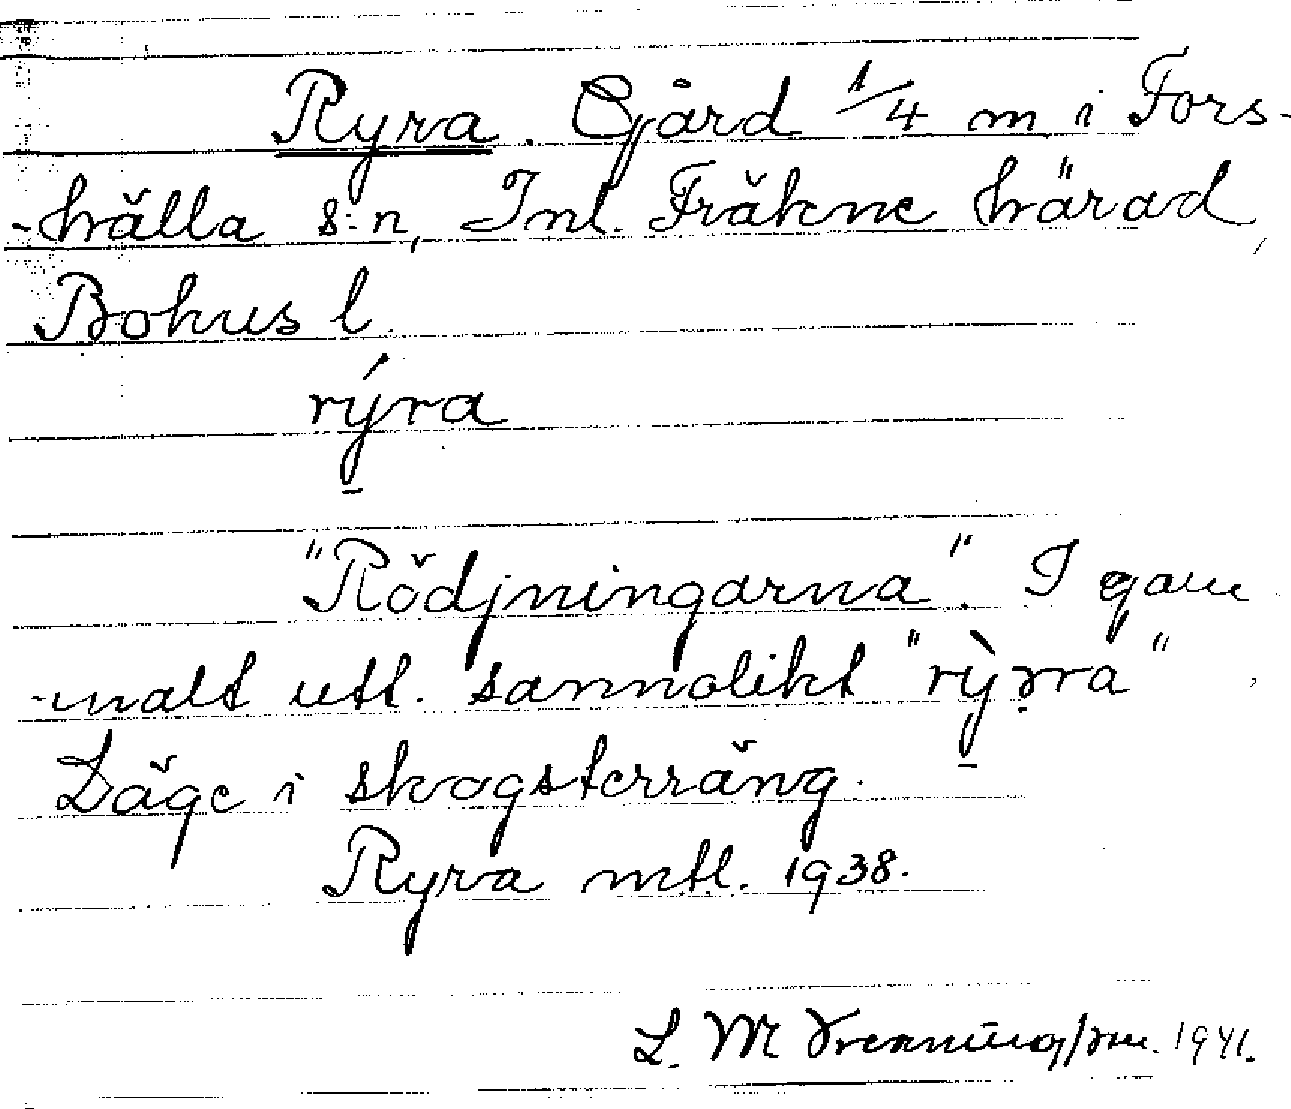 Ryra. Gård 1/4 m i Fors-
-hälla s:n, Inl. Fräkne härad,
Bohus l.
rýra
"Rödjningarna". I gam
-malt utl. sannolikt "rỳrra".
Läge i skogsterräng.
Ryra mtl. 1938.
L. M 1941.